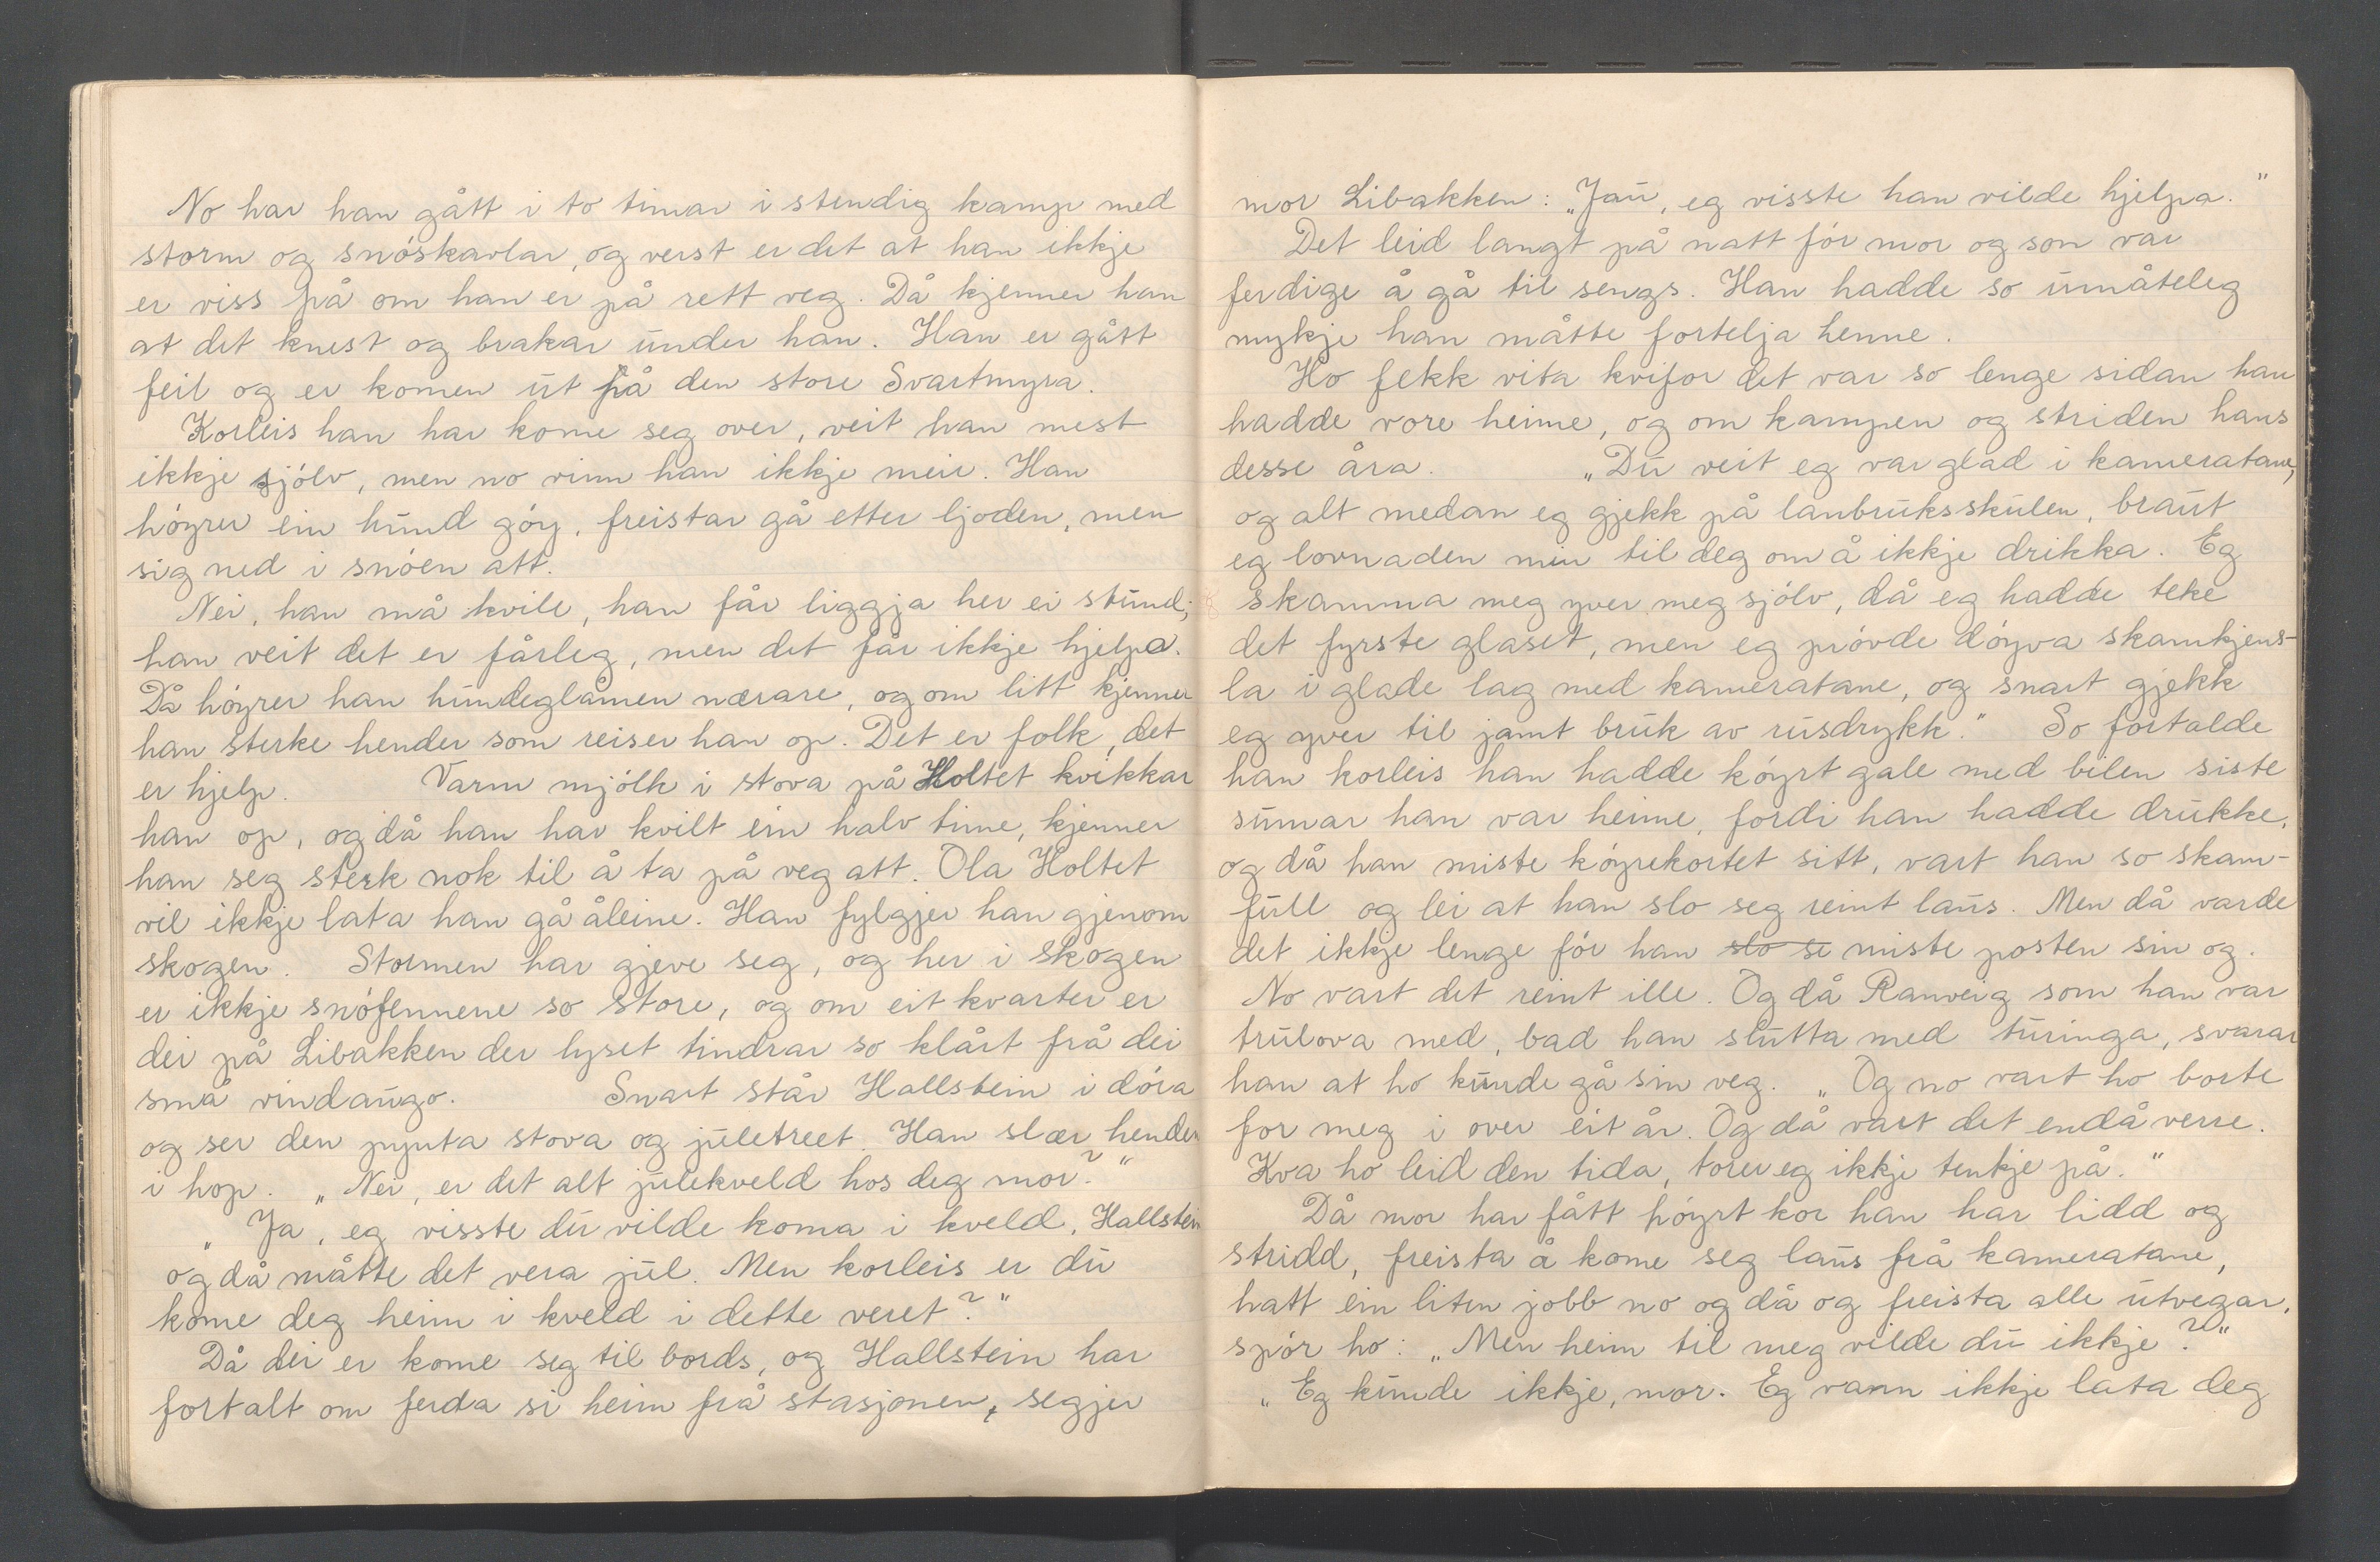 No har han gått i to timar i stendig kamp med
storm og snóskavlar, og verst er det at han ikkje
er viss på om han er på rett veg. Då kjenner han
at det knest og brakar under han. Han er gått
feil og er komen ut på den store Svartmyra.
Korleis han har kome seg over, veit han mest
ikkje sjólv, men no vinn han ikkje meir. Han
hóyrer ein hund góy, freistar gå etter ljoden, men
sig ned i snóen att.
Nei, han må kvile, han får liggja her ei stund;
han veit det er fårleg, men det får ikkje hjelpa.
Då hóyrer han hundeglåmen nærare, og om litt kjenner
han sterke hender som reiser han op. Det er folk, det
er hjelp. Varm mjólk i stova på Holtet kvikkar
han op, og då han har kvilt ein halv time, kjenner
han seg sterk nok til å ta på veg att. Ola Holtet
vil ikkje lata han gå åleine. Han fylgjer han gjenom
skogen. Stormen har gjeve seg, og her i skogen
er ikkje snófennene so store, og om eit kvarter er
dei på Libakken der lyset tindrar so klårt frå dei
små vindaugo. Snart står Hallstein i dóra
og ser den pynta stova og juletreet. Han slær hender
i hop. „Nei, er det alt julekveld hos deg mor?"
„Ja, eg visste du vilde koma i kveld, Hallstein
og då måtte det vera jul. Men korleis er du
kome deg heim i kveld i dette veret?"
Då dei er kome seg til bords, og Hallstein har
fortalt om ferda si heim frå stasjonen, segjer
mor Libakken: „Jau, eg visste han vilde hjelpa."
Det leid langt på natt fór mor og son var
ferdige å gå til sengs. Han hadde so umåteleg
mykje han måtte fortelja henne.
Ho fekk vita kvifor det var so lenge sidan han
hadde vore heime, og om kampen og striden hans
desse åra. „Du veit eg var glad i kameratane,
og alt medan eg gjekk på lanbruksskulen, braut
eg lovnaden min til deg om å ikkje drikka. Eg
skamma meg yver meg sjólv, då eg hadde teke
det fyrste glaset, men eg próvde dóyva skamkjens-
la i glade lag med kameratane, og snart gjekk
eg yver til jamt bruk av rusdrykk." So fortalde
han korleis han hadde kóyrt gale med bilen siste
sumar han var heime, fordi han hadde drukke,
og då han miste kóyrekortet sitt, vart han so skam-
full og lei at han slo seg reint laus. Men då varde
det ikkje lenge fór han slo se miste posten sin og.
No vart det reint ille. Og då Ranveig som han var
trulova med, bad han slutta med turinga, svarar
han at ho kunde gå sin veg. „Og no vart ho borte
for meg i over eit år. Og då vart det endå verre.
Kva ho leid den tida, torer eg ikkje tenkje på."
Då mor har fått hóyrt kor han har lidd og
stridd, freista å kome seg laus frå kameratane,
hatt ein liten jobb no og då og freista alle utvegar,
spór ho: „Men heim til meg vilde du ikkje?"
„Eg kunde ikkje, mor. Eg vann ikkje lata deg